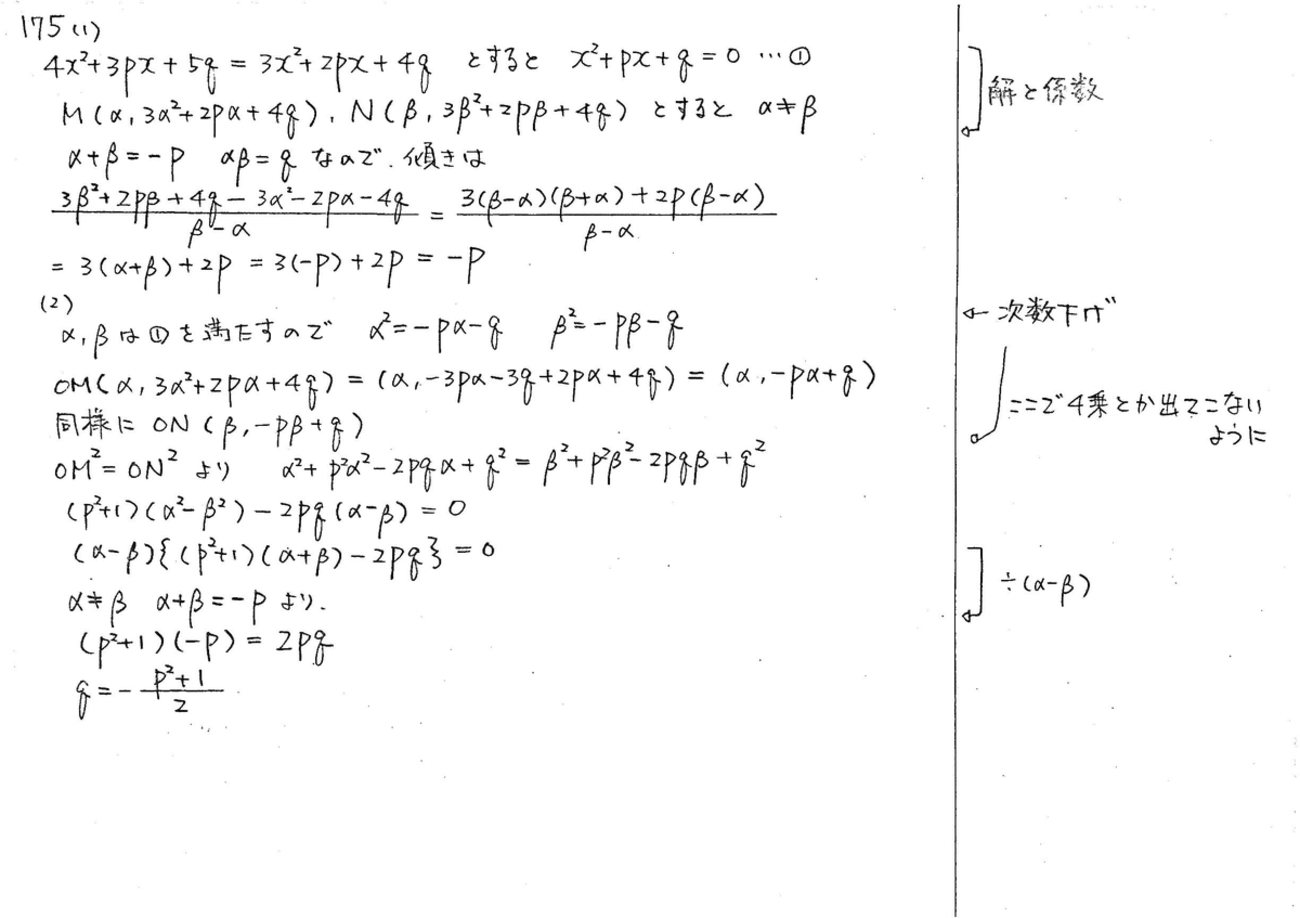 175 (1)
4x²+3px+5q = 3x²+2px+4q とすると x²+px+q=0 …①
M(α, 3α²+2pα+4q), N(β, 3β²+2pβ+4q) とすると α≠β
α+β=-p αβ=q なので、傾きは
(3β²+2pβ+4q-3α²-2pα-4q)/(β-α) = (3(β-α)(β+α)+2p(β-α))/(β-α)
= 3(α+β)+2p = 3(-p)+2p = -p
(2)
α, βは①を満たすので α²=-pα-q β²=-pβ-q
OM(α, 3α²+2pα+4q) = (α, -3pα-3q+2pα+4q) = (α, -pα+q)
同様に ON(β, -pβ+q)
OM²=ON² より α²+p²α²-2pqα+q² = β²+p²β²-2pqβ+q²
(p²+1)(α²-β²)-2pq(α-β)=0
(α-β){(p²+1)(α+β)-2pq}=0
α≠β α+β=-p より.
(p²+1)(-p)=2pq
q=-(p²+1)/2
解と係数
←次数下げ
ここで4乗とか出てこない
ように
÷(α-β)